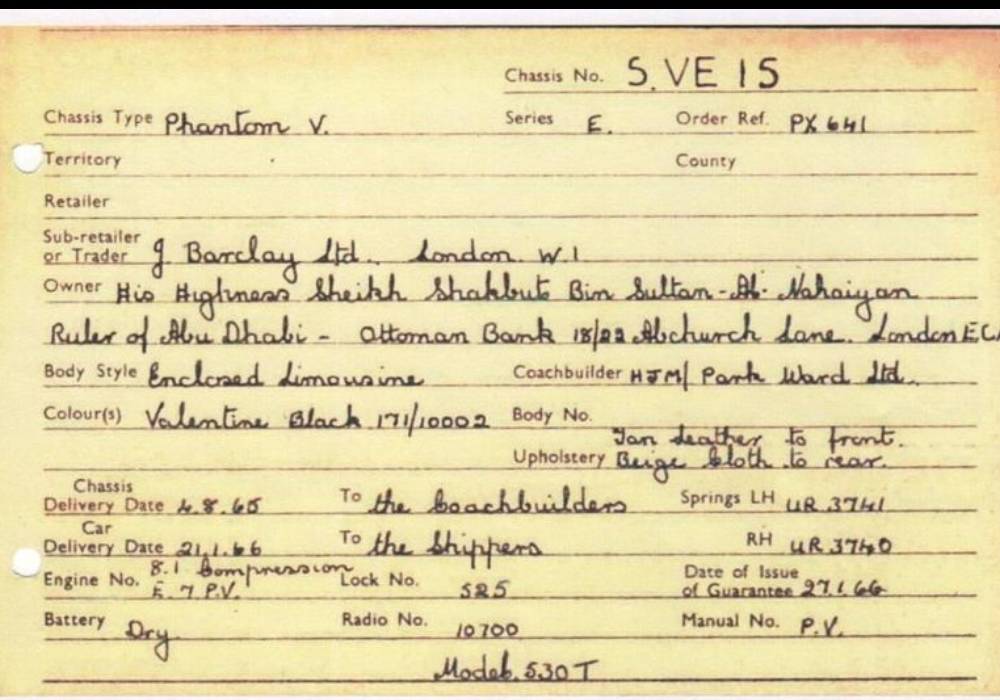 Chassis No. 5.VE 15
Chassis Type Phantom V. Series E. Order Ref. PX 641
Territory County
Retailer
Sub-retailer or Trader J Barclay Ltd. London. W.1
Owner His Highness Sheikh Shakbut Bin Sultan-Al-Nahaiyan
Ruler of Abu Dhabi - Ottoman Bank 18/22 Abchurch Lane. London EC
Body Style Enclosed Limousine Coachbuilder HJM/ Park Ward Ltd.
Colour(s) Valentine Black 171/10002 Body No.
Upholstery Tan leather to front.
Beige cloth to rear.
Chassis
Delivery Date 4.8.65 To the Coachbuilders Springs LH UR 3741
Car
Delivery Date 21.1.66 To the Shippers RH UR 3740
Engine No. 8.1 Compression
F. 7 P.V. Lock No. 525 Date of Issue
of Guarantee 27.1.66
Battery Dry. Radio No. 10700 Manual No. P.V.
Model. 530T